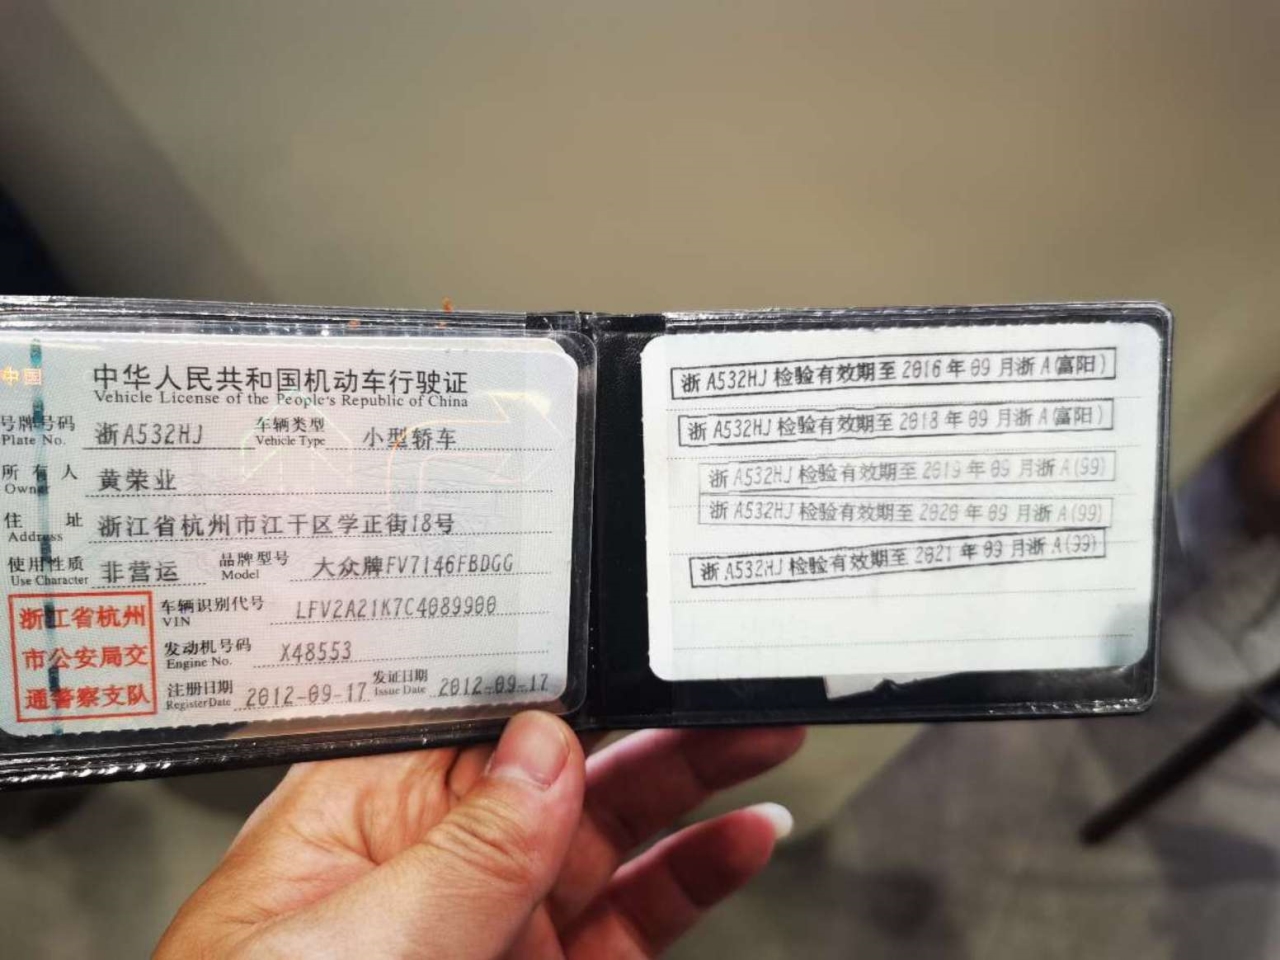 中国
中华人民共和国机动车行驶证
Vehicle License of the People's Republic of China
号牌号码 浙A532HJ 车辆类型 小型轿车
Plate No. Vehicle Type
所有人 黄荣业
Owner
住址 浙江省杭州市江干区学正街18号
Address
使用性质 非营运 品牌型号 大众牌FV7146FBDGG
Use Character Model
浙江省杭州
市公安局交
通警察支队
车辆识别代号 LFV2A21K7C4089900
VIN
发动机号码 X48553
Engine No.
注册日期 2012-09-17 发证日期 2012-09-17
Register Date Issue Date
浙A532HJ检验有效期至2016年09月浙A(富阳)
浙A532HJ检验有效期至2018年09月浙A(富阳)
浙A532HJ检验有效期至2019年09月浙A(99)
浙A532HJ检验有效期至2020年09月浙A(99)
浙A532HJ检验有效期至2021年09月浙A(99)